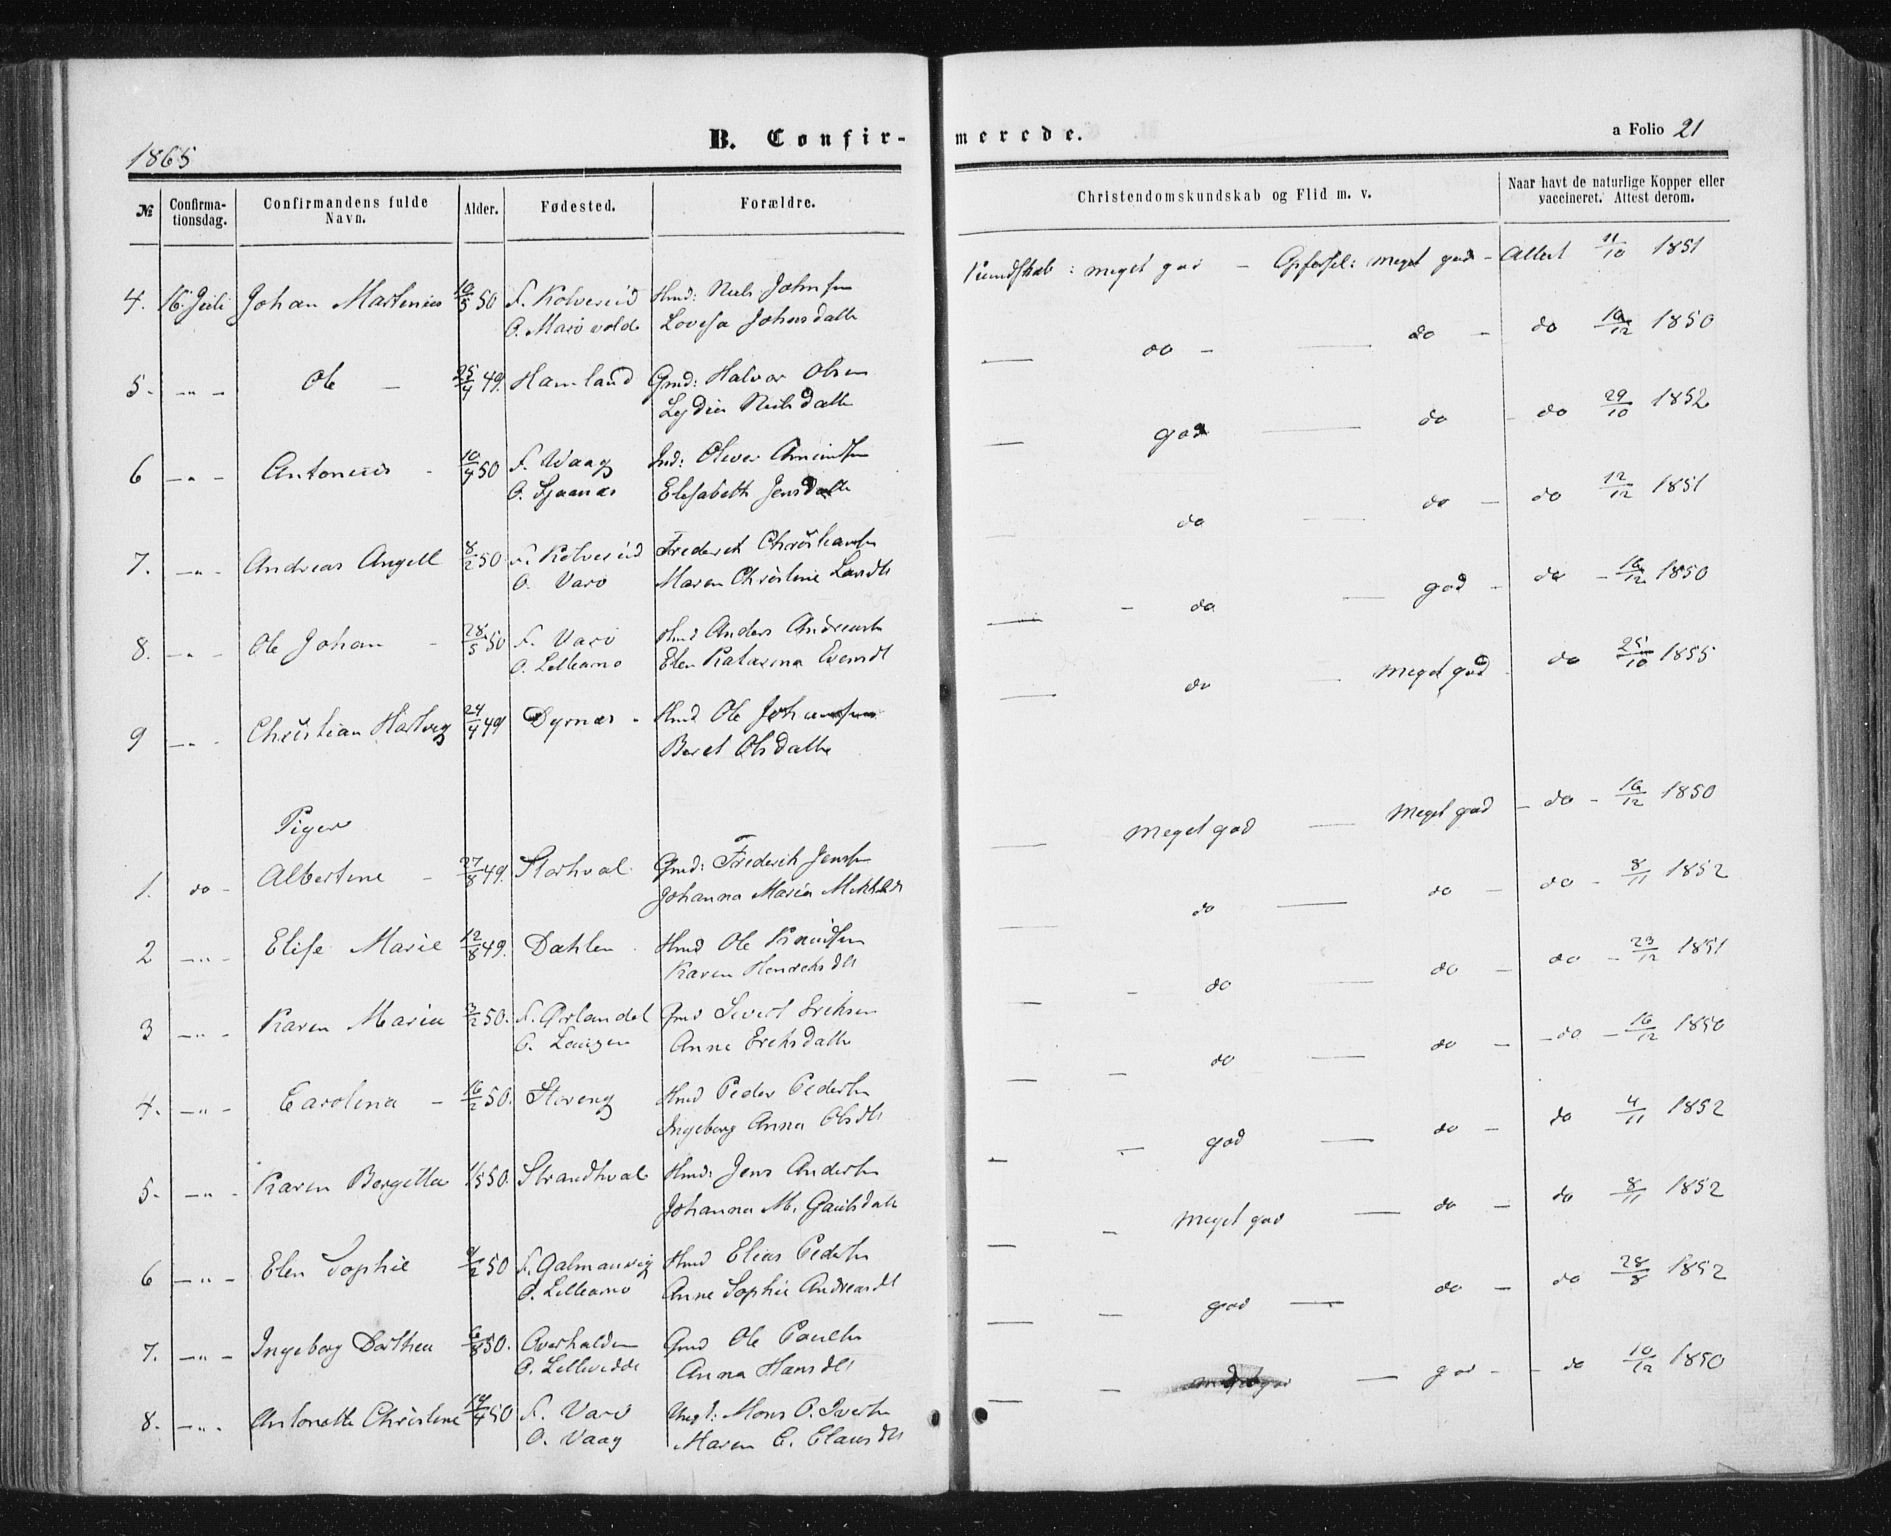 1865
B. Confir-
merede.
a Folio 21
№
Confirma-
tionsdag.
Confirmandens fulde
Navn.
Alder.
Fødested.
Forældre.
Christendomskundskab og Flid m. v.
Naar havt de naturlige Kopper eller
vaccineret. Attest derom.
4. 16 Juli Johan Martenius 10/5 50 F. Kolvereid Hmd: Niels Johnsen Kundskab: meget god - Opførsel: meget god - Attest 11/10 1851
O. Marøvolde Lovisa Johnsdatte
5. —"— Ole — 25/4 49. Hamland Gmd: Halvor Olsen — do - — do - do 16/12 1850
Lydia Nielsdatte
6 —"— Antonius - 10/4 50 F. Waag Ind: Oliver — god — do - do 29/10 1852
O. Elisabeth Jensdatte
7. —"— Andreas Angell 8/2 50 F. Kolvereid Frederik Christiansen — do — do - do 12/12 1851
O. Varø Maren Christine
8. —"— Ole Johan - 28/5 50 F. Varø Hmd Anders Andreassen — - do — god - do - 16/12 1850
O. Lillearnø Elen Katarina
9 —"— Christian Hartvig 24/4 49 Dyrnæs - Hmd Ole Johansen — do — meget god do 25/10 1855
Beret Olsdatte
Piger
1. do - Albertine - 27/8 49. Storhval Gmd: Frederik Jensen — meget god — meget god - do - 16/12 1850
Johanna Maria
2 —"— Elise Marie 12/8 49. Dahlen Hmd Ole Knudsen — do — do - do - 8/11 1852
Karen Henriksdt
3 —"— Karen Maria 3/2 50. F. Ørlandet Gmd Sivert Eriksen — - do — do - do - 23/12 1851
O. Laugen Anne Eriksdatte
4. —"— Carolina - 16/2 50. Storeng Hmd Peder Pedersen — - do — do - - do - 16/12 1850
Ingeborg Anna Olsdt
5. —"— Karen Bergitta 1/5 50. Strandhval Hmd: Jens Andersen — - god — do - do 4/11 1852
Johanna M. Paulsdatte
6 —"— Elen Sophie 9/2 50 F. Galmanvig Hmd Elias Pedersen — - meget god — do - do 8/11 1852
O. Lillearnø Anne Sophie Andreasdt
7. —"— Ingeborg Dorthea 6/8 50. Overhalden Gmd Ole Paulsen — - god — do - do 28/8 1852
O. Anna Hansdt
8. —"— Antonette Christine 14/4 50 F. Varø Ungk: Mons P. Iversen — - — god - - do 10/12 1850
O. Vaag Maren E. Clausdt